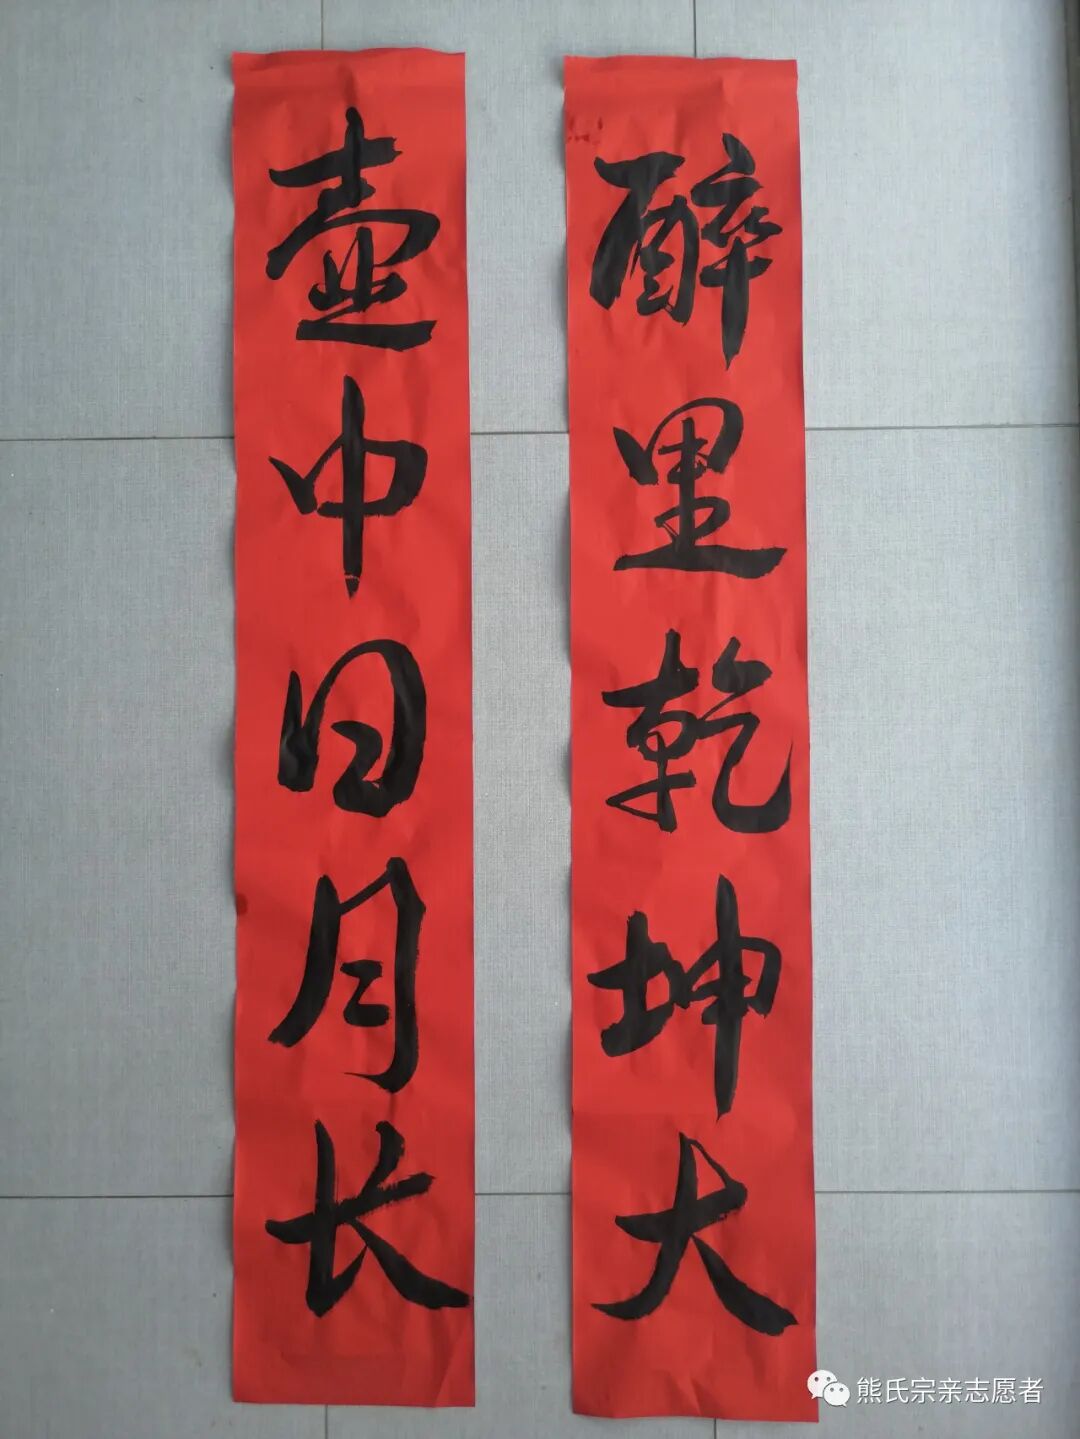 醉里乾坤大
壶中日月长
熊氏宗亲志愿者